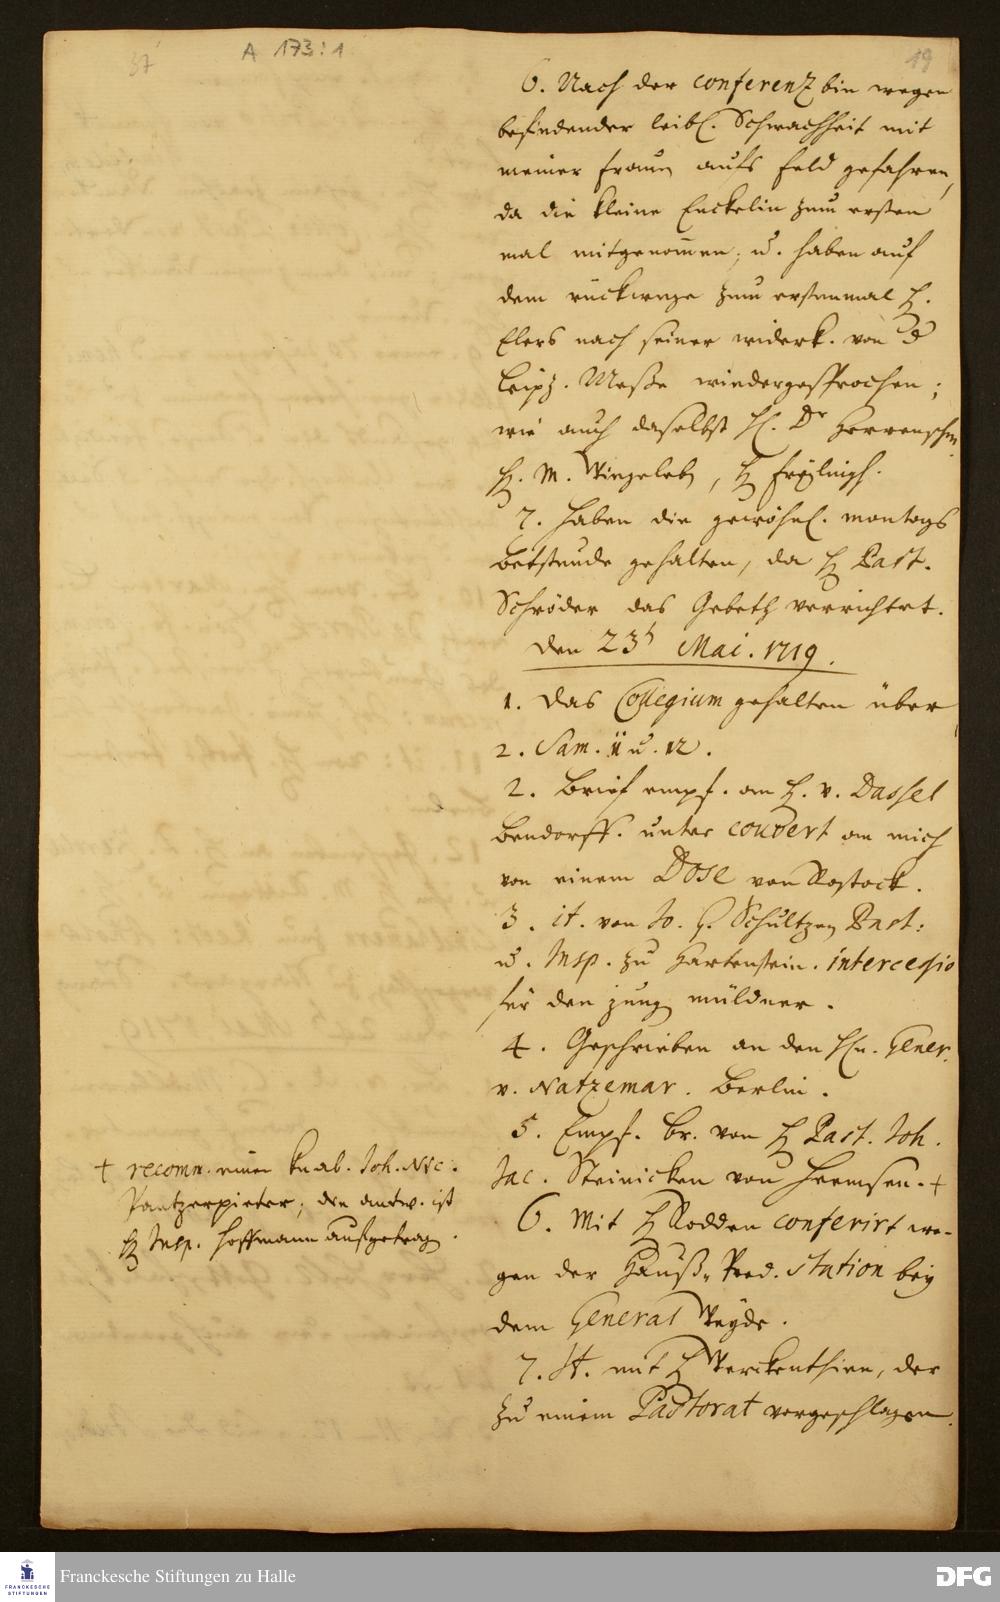 37
A 173:1
19
6. Nach der conferenz bin wegen
befindender leibl. Schwachheit mit
meiner Frauen aufs Feld gefahren,
da die kleine Enckelin zum ersten
mal mitgenommen; u. haben auf
dem rückwege zum erstenmal H.
Elers nach seiner widerk. von d
Leipz. Meße wiedergesprochen;
wie auch daselbst H. Dr Herrenschm.
H. M. Wiegeleb, H Freylingh.
7. haben die gewöhnl. montags
betstunde gehalten, da H Past.
Schröder das Gebeth verrichtet.
den 23t Mai. 1719.
1. Das Collegium gehalten über
2. Sam. 11 u. 12.
2. Brief empf. an H. v. Dassel
Bendorff. unter couvert an mich
von einem Dose von Rostock.
3. it. von Jo. G. Schultzen Past:
u. Insp. zu Hartenstein. intercessio
für den jung müldner.
4. Geschrieben an den Hn. Gener.
v. Natzemar. Berlin.
5. Empf. br. von H Past. Joh.
Jac. Steinicken von Heemsen. +
6. Mit H Rodden conferirt we-
gen der Hauß-Pred. station bey
dem General Weyde.
7. It. mit H Werckenthien, der
zu einem Pastorat vorgeschlagen.
+ recomm. einen knab. Joh. Nic.
Pantzerpieter; die antw. ist
H Insp. Hoffmann aufgetrag.
FRANCKESCHE STIFTUNGEN
Franckesche Stiftungen zu Halle
DFG